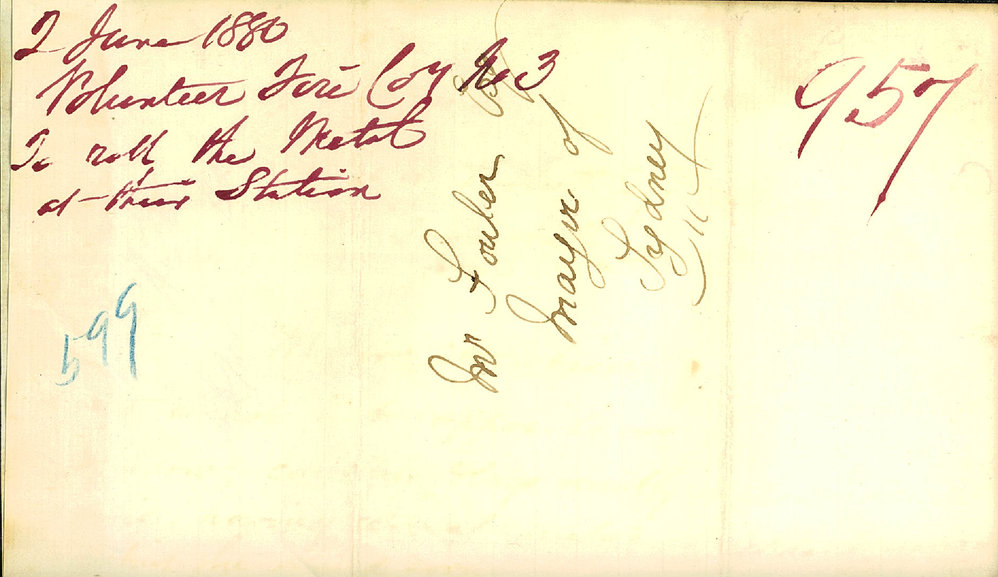 2 June 1880
Volunteer Fire Coy No 3
To roll the Metal
at their Station
957
Mr Fowler
Mayor of
Sydney
599